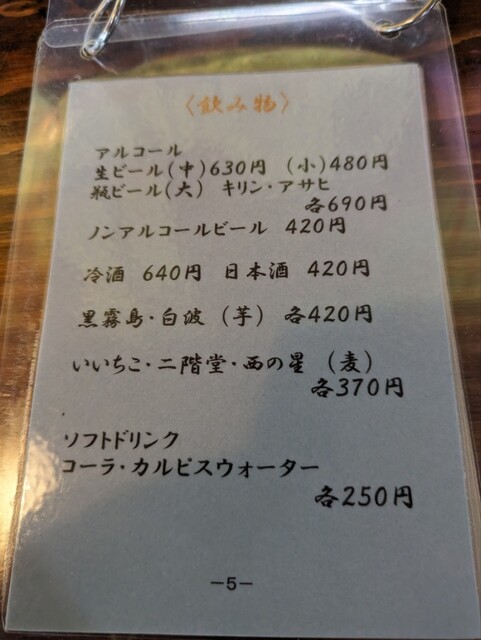 〈飲み物〉
アルコール
生ビール(中)630円 (小)480円
瓶ビール(大) キリン・アサヒ
各690円
ノンアルコールビール 420円
冷酒 640円 日本酒 420円
黒霧島・白波 (芋) 各420円
いいちこ・二階堂・西の星 (麦)
各370円
ソフトドリンク
コーラ・カルピスウォーター
各250円
-5-